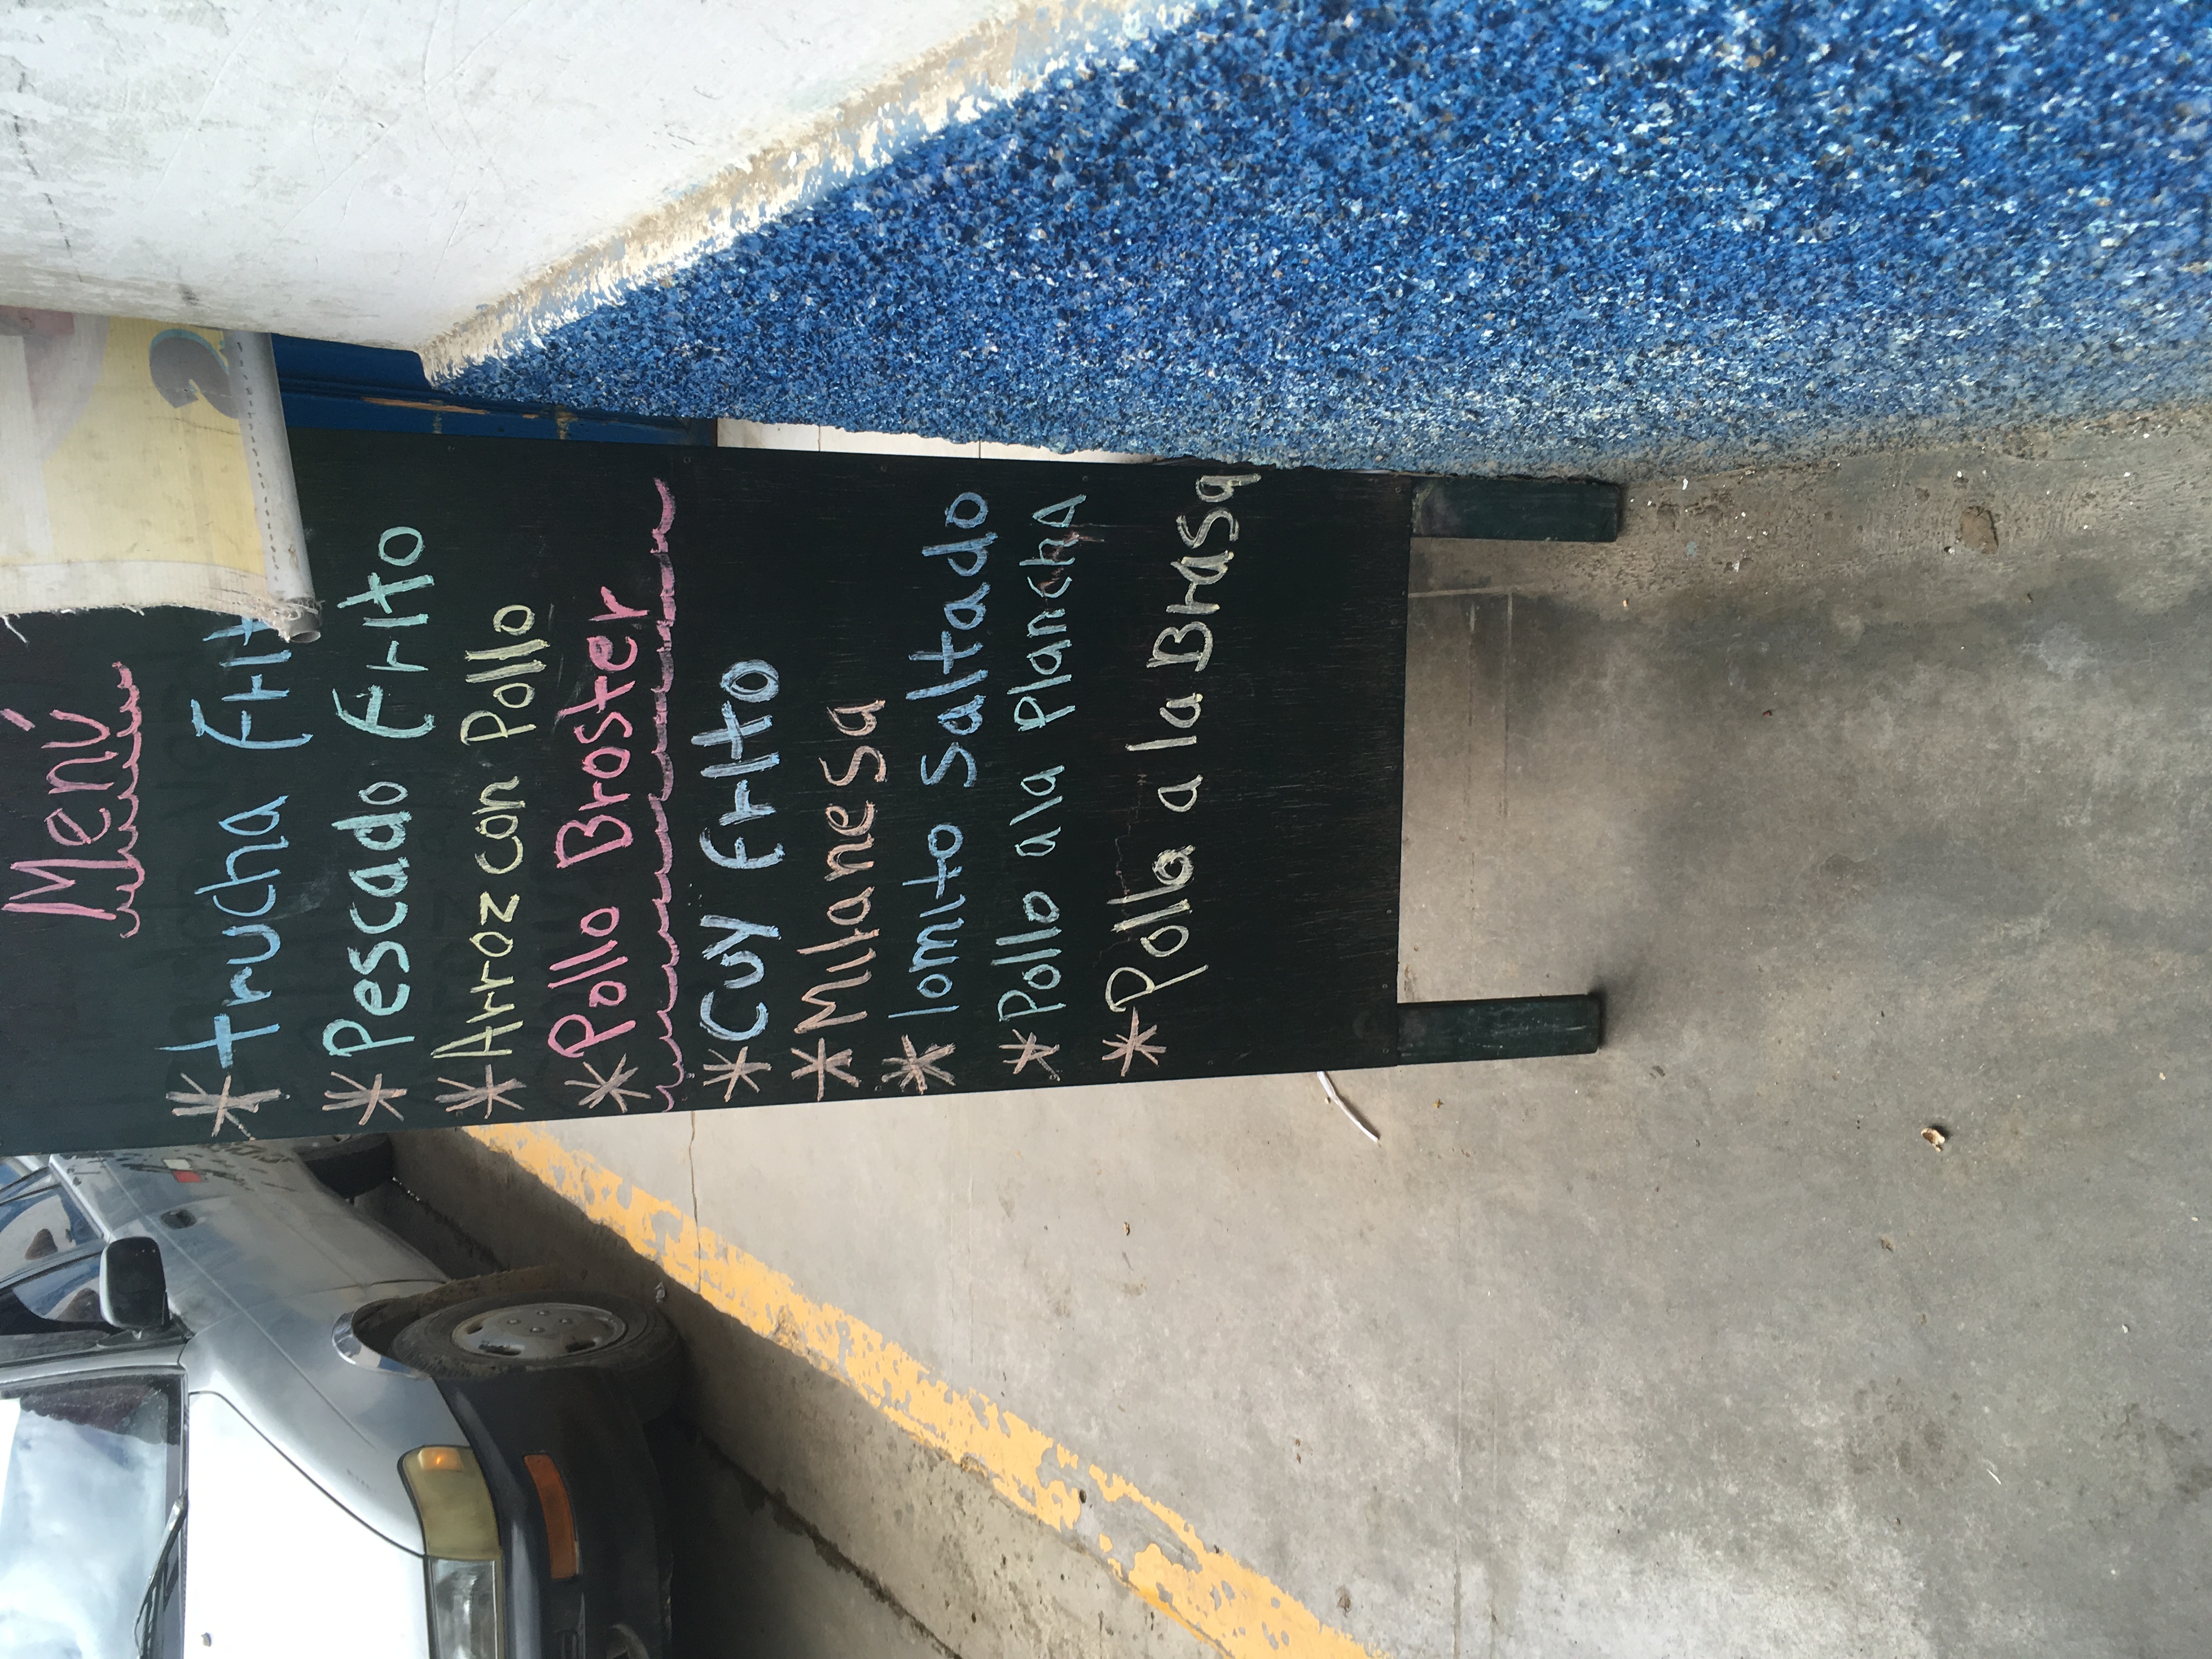 Menú
* trucha Frit
* Pescado Frito
* Arroz con Pollo
* Pollo Broster
* Cuy Frito
* Milanesa
* lomito Saltado
* Pollo a la PlanchA
* Pollo a la Brasa
2